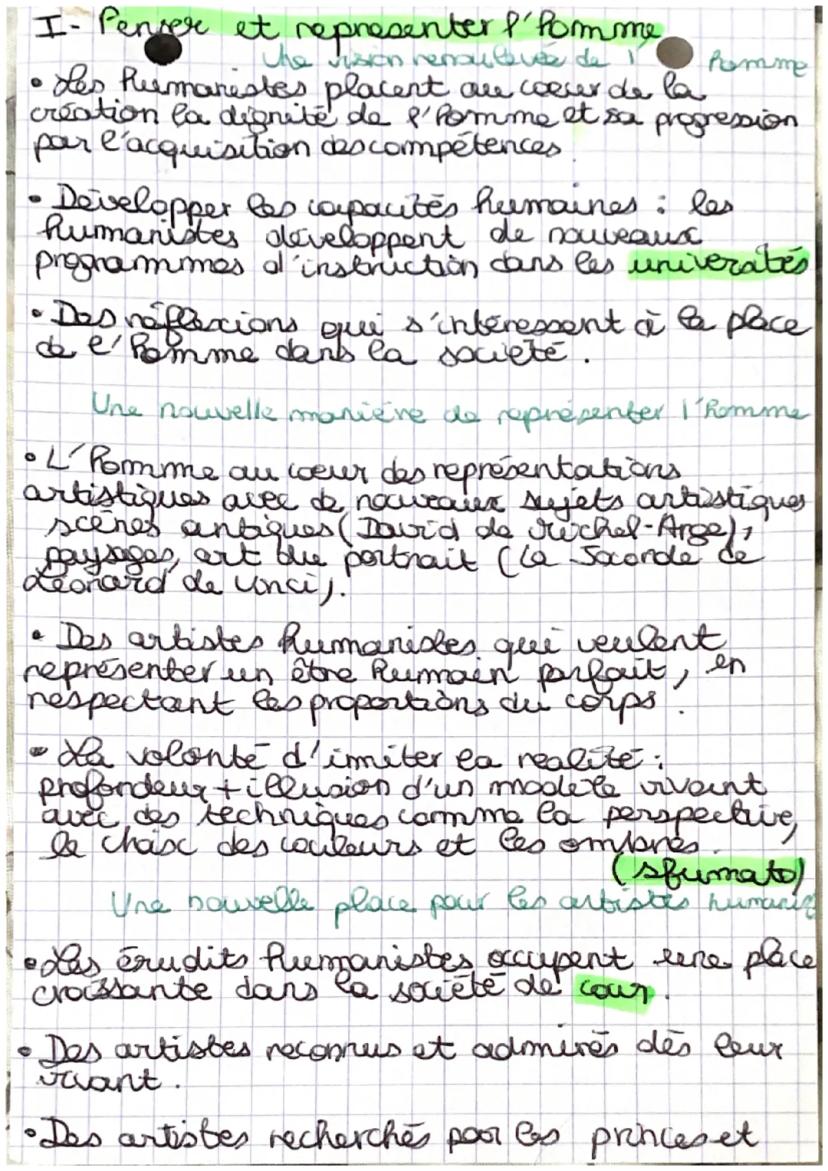 I- Penser et representer l'homme
Une vision renouvelée de l' homme
• Les humanistes placent au coeur de la
création la dignité de l'homme et sa progression
par l'acquisition des compétences
• Développer les capacités humaines : les
humanistes développent de nouveaux
programmes d'instruction dans les universités
• Des réflexions qui s'intéressent à la place
de l'homme dans la société .
Une nouvelle manière de représenter l'homme
• L'homme au coeur des représentations
artistiques avec de nouveaux sujets artistiques
scènes antiques (David de Michel-Ange),
paysages, art du portrait (la Joconde de
Léonard de Vinci).
• Des artistes humanistes qui veulent
représenter un être humain parfait, en
respectant les proportions du corps .
• La volonté d'imiter la realité :
profondeur + illusion d'un modèle vivant
avec des techniques comme la perspective,
le choix des couleurs et les ombres .
(sfumato)
Une nouvelle place pour les artistes humanis
• Les érudits humanistes occupent une place
croissante dans la société de cour .
• Des artistes reconnus et admirés dès leur
vivant .
• Des artistes recherchés par les princes et